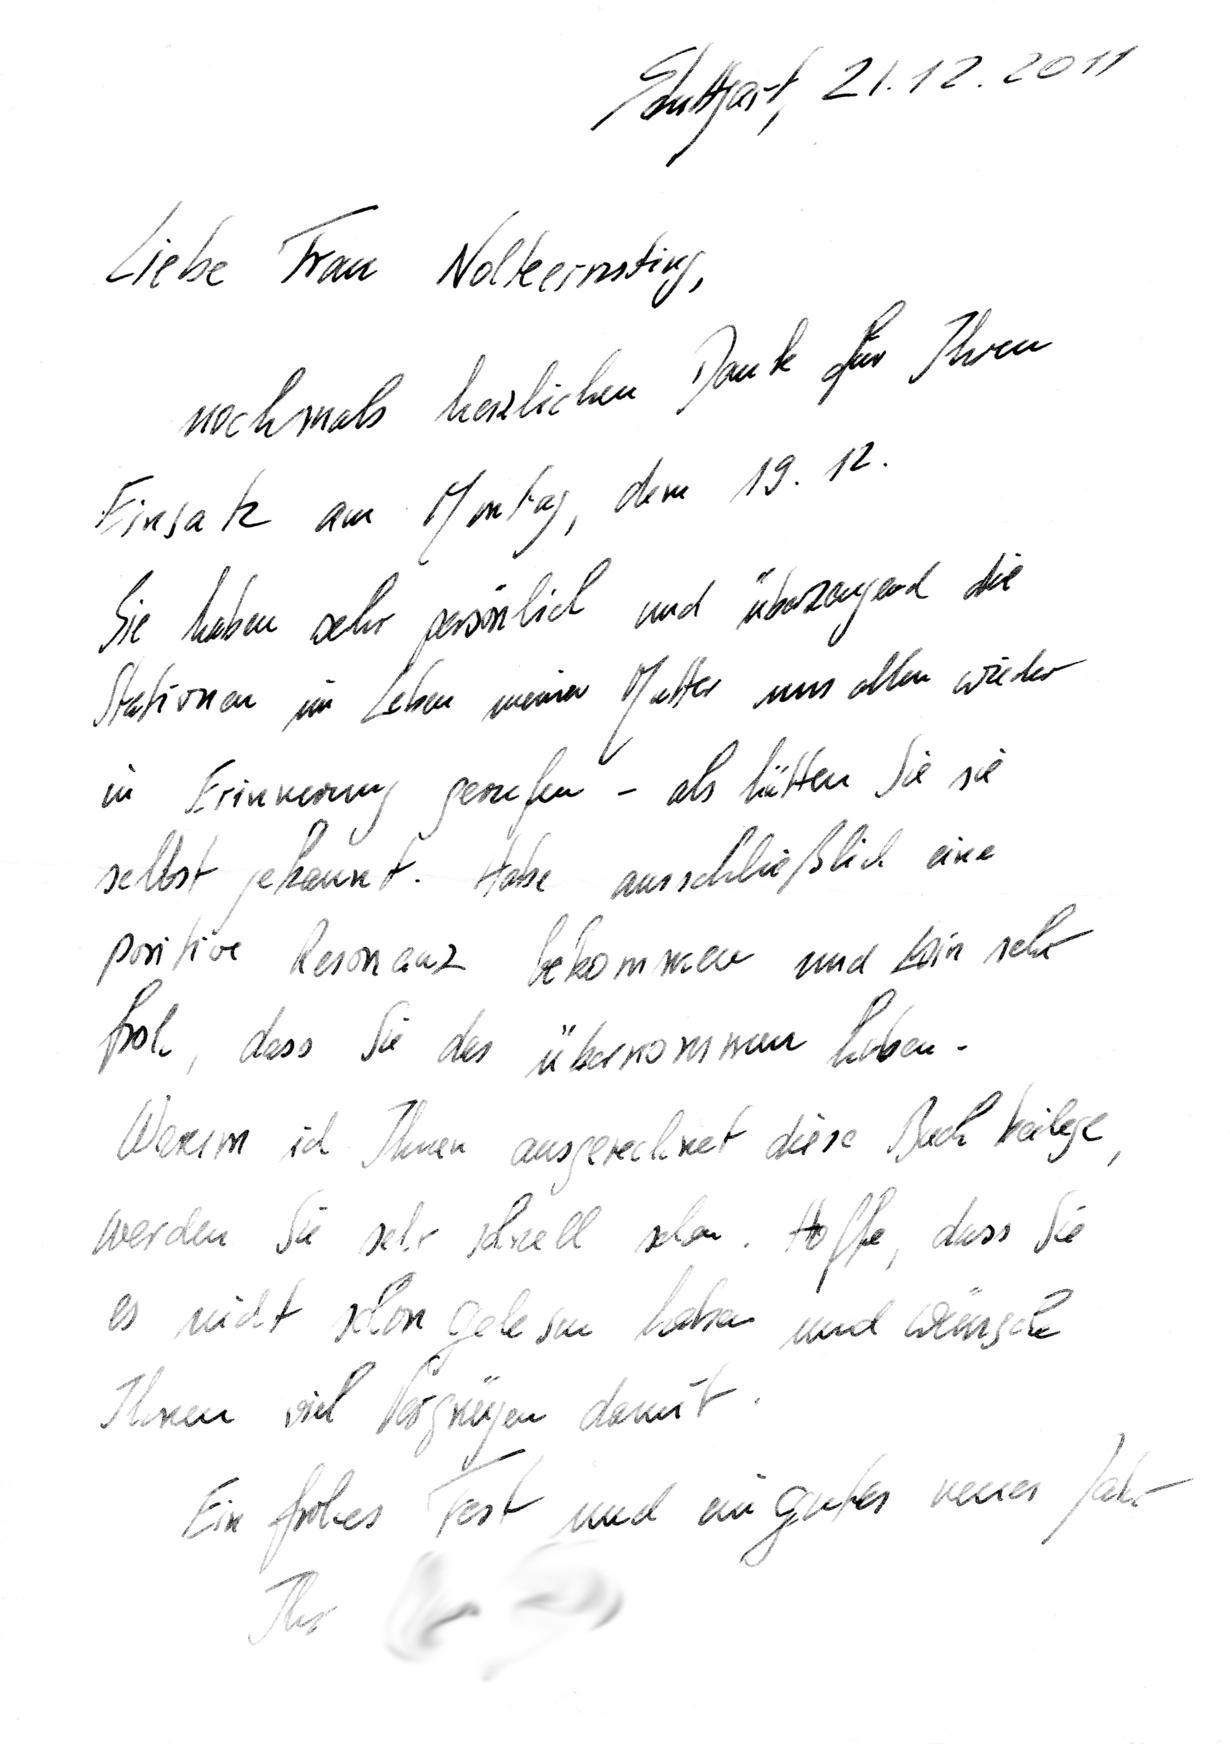 Stuttgart, 21.12.2011
Liebe Frau Nolteernsting,
nochmals herzlichen Dank für Ihren
Einsatz am Montag, dem 19.12.
Sie haben sehr persönlich und überzeugend die
Stationen im Leben meiner Mutter uns allen wieder
in Erinnerung gerufen – als hätten Sie sie
selbst gekannt. Habe ausschließlich eine
positive Resonanz bekommen und bin sehr
froh, dass Sie das übernommen haben.
Warum ich Ihnen ausgerechnet diese Buch beilege,
werden Sie sehr schnell sehen. Hoffe, dass Sie
es nicht schon gelesen haben und wünsche
Ihnen viel Vergnügen damit.
Ein frohes Fest und ein gutes neues Jahr
Ihr